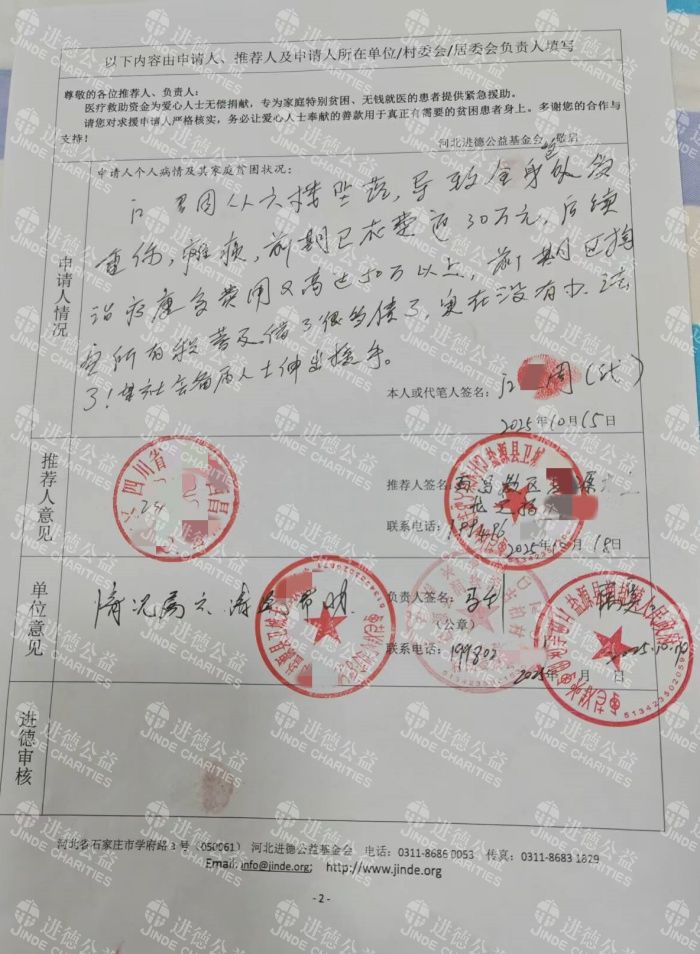 以下内容由申请人、推荐人及申请人所在单位/村委会/居委会负责人填写
尊敬的各位推荐人、负责人：
医疗救助资金为爱心人士无偿捐献，专为家庭特别贫困、无钱就医的患者提供紧急援助。
请您对求援申请人严格核实，务必让爱心人士奉献的善款用于真正有需要的贫困患者身上。多谢您的合作与
支持！
河北进德公益基金会 敬启
申请人情况
申请人个人病情及其家庭贫困状况：
江 周因从六楼坠落，导致全身多处
重伤，瘫痪，前期已花费近30万元，后续
治疗康复费用又高达50万以上，前期已掏
空所有积蓄及借了很多债了，实在没有办法
了！望社会各届人士伸出援手。
本人或代笔人签名：江 周（代）
2025年10月15日
推荐人意见
四川省 西昌
推荐人签名：
盐源县卫城
联系电话：
2025年10月18日
单位意见
情况属实
负责人签名：马
（公章）
联系电话：199802
2025年 月 日
盐源县 人民政府
5134235020595
2025.10.
进德审核
河北省石家庄市学府路3号（050061） 河北进德公益基金会 电话：0311-8686 0053 传真：0311-8683 1829
Email:info@jinde.org; http://www.jinde.org
- 2 -
进德公益
JINDE CHARITIES